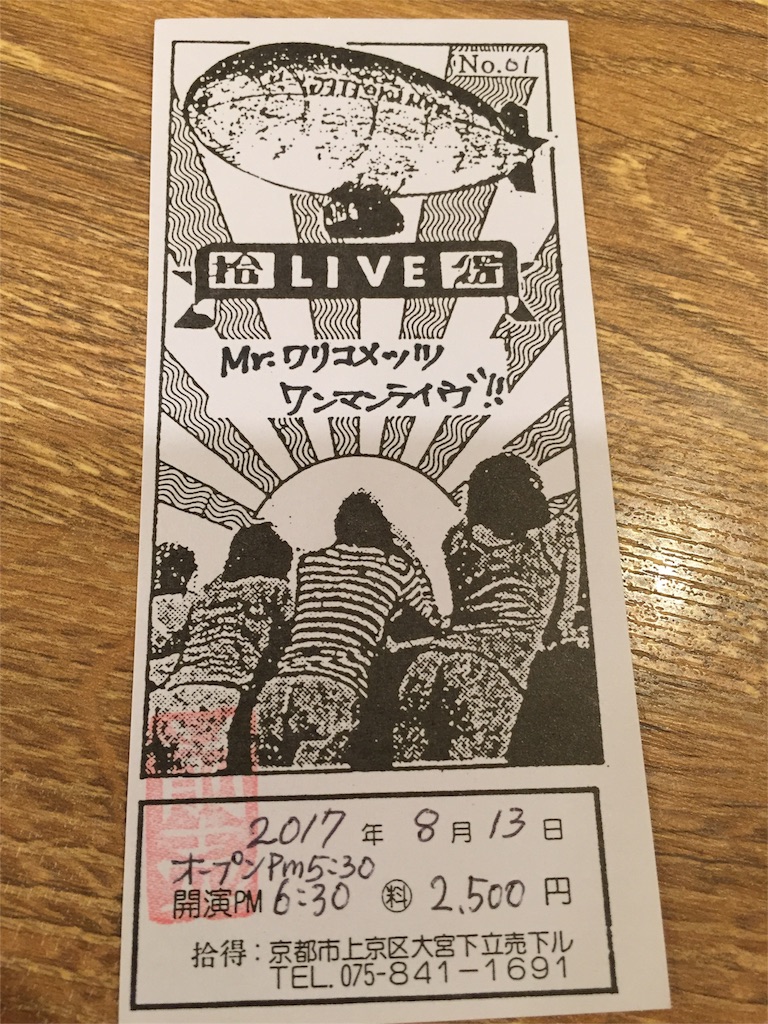 No.01
拾 LIVE 得
Mr.ワリコメッツ
ワンマンライヴ!!
2017年 8月 13日
オープンPm5:30
開演PM 6:30 ㊕ 2,500円
拾得:京都市上京区大宮下立売下ル
TEL.075-841-1691